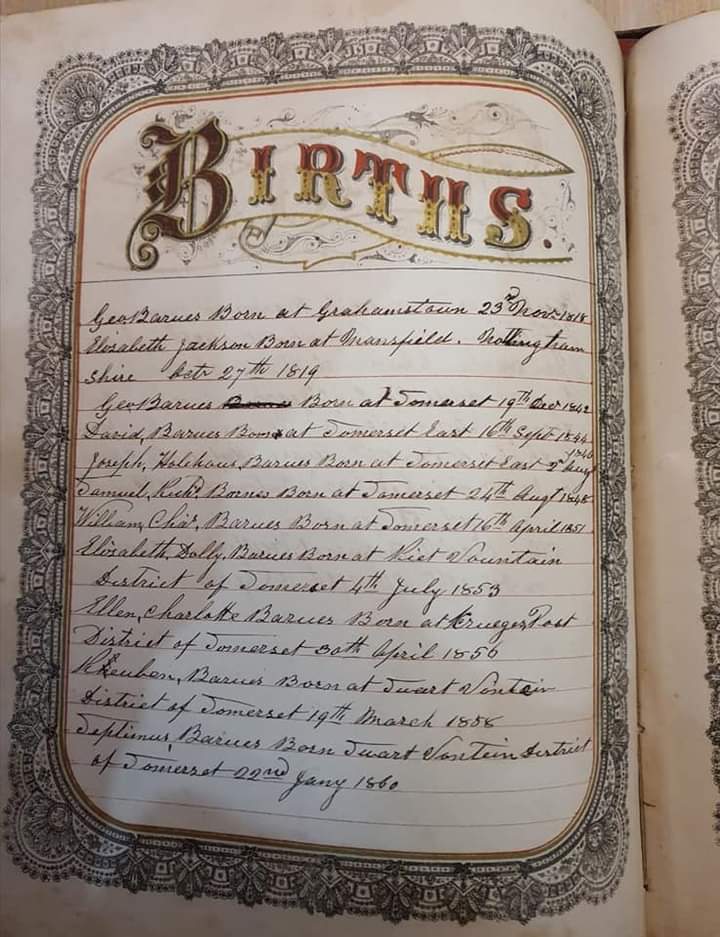 BIRTHS.
Geo Barnes Born at Grahamstown 23rd Novr 1818
Elizabeth Jackson Born at Mansfield. Nottingham
Shire Octr 27th 1819
Geo Barnes Born at Somerset 19th Decr 1842
David, Barnes Born at Somerset East 16th Sept 1844
Joseph, Holehaus, Barnes Born at Somerset East 2d Augt 1846
Samuel, Richd Barnes Born at Somerset 24th Augt 1848
William, Chas, Barnes Born at Somerset 16th April 1851
Elizabeth, Dolly, Barnes Born at Riet Vountain
District of Somerset 4th July 1853
Ellen, Charlotte Barnes Born at Krueges Post
District of Somerset 30th April 1856
Reuben, Barnes Born at Swart Vontein
District of Somerset 19th March 1858
Septimus, Barnes Born Swart Vontein District
of Somerset 22nd Jany 1860